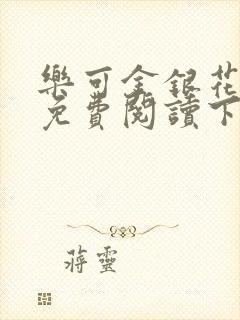 樂可金銀花
免費閱讀下
蔣靈